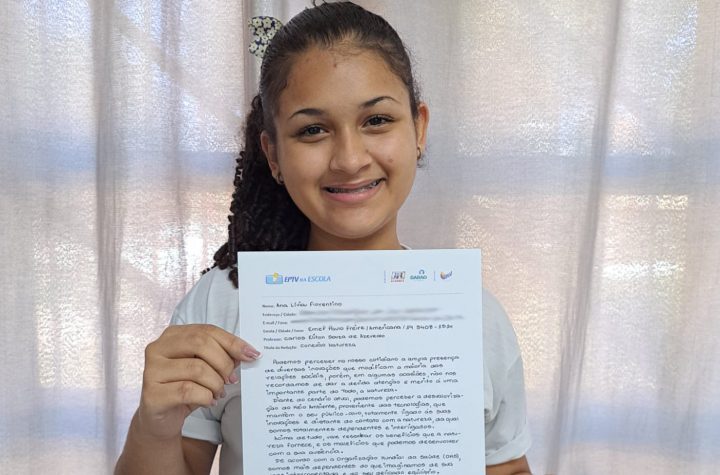 EPTV NA ESCOLA
Nome: Ana Lívia Fiorentino
Endereço / Cidade:
E-mail / Fone:
Escola / Cidade / Fone: Emef Paulo Freire / Americana / 19 3408-
Professor: Carlos Eliton Souza de Azevedo
Título da Redação: Conexão Natureza
Podemos perceber no nosso cotidiano a ampla presença
de diversas inovações que modificam a maioria das
relações sociais, porém, em algumas ocasiões, não nos
recordamos de dar a devida atenção e mérito à uma
importante parte do todo, a natureza.
Diante do cenário atual, podemos perceber a desvaloriza-
ção do Meio Ambiente, proveniente das tecnologias, que
mantém o seu público-alvo, totalmente ligado às suas
inovações e distante do contato com a natureza, da qual
somos totalmente dependentes e interligados.
Acima de tudo, vale ressaltar os benefícios que a natu-
reza fornece, e os malefícios que podemos desenvolver
com a sua ausência.
De acordo com a Organização Mundial da Saúde (OMS),
somos mais dependentes do que imaginamos de sua